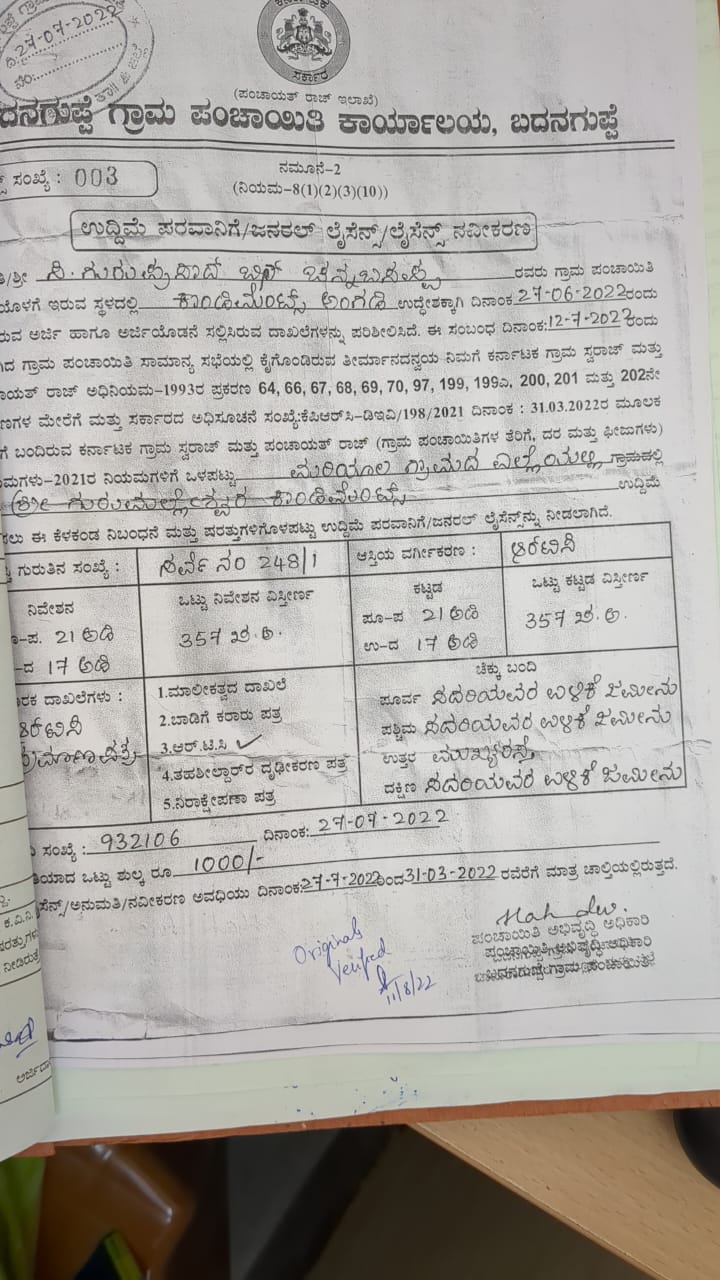 ದಿ.27-07-2022
ನಂ:
ಕರ್ನಾಟಕ
ಸರ್ಕಾರ
(ಪಂಚಾಯತ್ ರಾಜ್ ಇಲಾಖೆ)
ದನಗುಪ್ಪೆ ಗ್ರಾಮ ಪಂಚಾಯಿತಿ ಕಾರ್ಯಾಲಯ, ಬದನಗುಪ್ಪೆ
ಸಂಖ್ಯೆ : 003
ನಮೂನೆ-2
(ನಿಯಮ-8(1)(2)(3)(10))
ಉದ್ದಿಮೆ ಪರವಾನಿಗೆ/ಜನರಲ್ ಲೈಸೆನ್ಸ್/ಲೈಸೆನ್ಸ್ ನವೀಕರಣ
/ಶ್ರೀ ಸಿ. ಗುರುಪ್ರಸಾದ್ ಬಿನ್ ಚನ್ನಬಸಪ್ಪ ರವರು ಗ್ರಾಮ ಪಂಚಾಯಿತಿ
ಯೊಳಗೆ ಇರುವ ಸ್ಥಳದಲ್ಲಿ ಕಾಂಡಿಮೆಂಟ್ಸ್ ಅಂಗಡಿ ಉದ್ದೇಶಕ್ಕಾಗಿ ದಿನಾಂಕ 27-06-2022ರಂದು
ರುವ ಅರ್ಜಿ ಹಾಗೂ ಅರ್ಜಿಯೊಡನೆ ಸಲ್ಲಿಸಿರುವ ದಾಖಲೆಗಳನ್ನು ಪರಿಶೀಲಿಸಿದೆ. ಈ ಸಂಬಂಧ ದಿನಾಂಕ:12-7-2022ರಂದು
ದ ಗ್ರಾಮ ಪಂಚಾಯಿತಿ ಸಾಮಾನ್ಯ ಸಭೆಯಲ್ಲಿ ಕೈಗೊಂಡಿರುವ ತೀರ್ಮಾನದನ್ವಯ ನಿಮಗೆ ಕರ್ನಾಟಕ ಗ್ರಾಮ ಸ್ವರಾಜ್ ಮತ್ತು
ಾಯತ್ ರಾಜ್ ಅಧಿನಿಯಮ-1993ರ ಪ್ರಕರಣ 64, 66, 67, 68, 69, 70, 97, 199, 199ಎ, 200, 201 ಮತ್ತು 202ನೇ
ಣಗಳ ಮೇರೆಗೆ ಮತ್ತು ಸರ್ಕಾರದ ಅಧಿಸೂಚನೆ ಸಂಖ್ಯೆ:ಕೆಪಿಆರ್‌ಸಿ-ಡಿಇವಿ/198/2021 ದಿನಾಂಕ : 31.03.2022ರ ಮೂಲಕ
ಗೆ ಬಂದಿರುವ ಕರ್ನಾಟಕ ಗ್ರಾಮ ಸ್ವರಾಜ್ ಮತ್ತು ಪಂಚಾಯತ್ ರಾಜ್ (ಗ್ರಾಮ ಪಂಚಾಯಿತಿಗಳ ತೆರಿಗೆ, ದರ ಮತ್ತು ಫೀಜುಗಳು)
ಮಗಳು-2021ರ ನಿಯಮಗಳಿಗೆ ಒಳಪಟ್ಟು ಮರಿಯಾಲ ಗ್ರಾಮದ ಎಲ್ಲೆಯಲ್ಲಿ ಗ್ರಾಮದಲ್ಲಿ
ಶ್ರೀ ಗುರುಮಲ್ಲೇಶ್ವರ ಕಾಂಡಿಮೆಂಟ್ಸ್ ಉದ್ದಿಮೆ
ಸಲು ಈ ಕೆಳಕಂಡ ನಿಬಂಧನೆ ಮತ್ತು ಷರತ್ತುಗಳಿಗೊಳಪಟ್ಟು ಉದ್ದಿಮೆ ಪರವಾನಿಗೆ/ಜನರಲ್ ಲೈಸೆನ್ಸ್‌ನ್ನು ನೀಡಲಾಗಿದೆ.
ಗುರುತಿನ ಸಂಖ್ಯೆ : ಸರ್ವೆ ನಂ 248/1 ಆಸ್ತಿಯ ವರ್ಗೀಕರಣ : ಆರ್‌ಟಿಸಿ
ನಿವೇಶನ ಒಟ್ಟು ನಿವೇಶನ ವಿಸ್ತೀರ್ಣ ಕಟ್ಟಡ ಒಟ್ಟು ಕಟ್ಟಡ ವಿಸ್ತೀರ್ಣ
-ಪ. 21 ಅಡಿ 357 ಚ.ಅ. ಪೂ-ಪ 21 ಅಡಿ 357 ಚ.ಅ.
-ದ 17 ಅಡಿ ಉ-ದ 17 ಅಡಿ
ರಕ ದಾಖಲೆಗಳು : 1.ಮಾಲೀಕತ್ವದ ದಾಖಲೆ ಚೆಕ್ಕು ಬಂದಿ
ಆರ್‌ಟಿಸಿ 2.ಬಾಡಿಗೆ ಕರಾರು ಪತ್ರ ಪೂರ್ವ ಸದರಿಯವರ ಬಳಿಕೆ ಜಮೀನು
ಪ್ರಮಾಣಪತ್ರ 3.ಆರ್.ಟಿ.ಸಿ ✓ ಪಶ್ಚಿಮ ಸದರಿಯವರ ಬಳಿಕೆ ಜಮೀನು
4.ತಹಶೀಲ್ದಾರ್‌ರ ದೃಢೀಕರಣ ಪತ್ರ ಉತ್ತರ ಮುಖ್ಯರಸ್ತೆ
5.ನಿರಾಕ್ಷೇಪಣಾ ಪತ್ರ ದಕ್ಷಿಣ ಸದರಿಯವರ ಬಳಿಕೆ ಜಮೀನು
ಸಂಖ್ಯೆ : 932106 ದಿನಾಂಕ: 27-07-2022
ಯಾದ ಒಟ್ಟು ಶುಲ್ಕ ರೂ 1000/-
ಸೆನ್ಸ್/ಅನುಮತಿ/ನವೀಕರಣ ಅವಧಿಯು ದಿನಾಂಕ:27-7-2022ರಿಂದ 31-03-2022 ರವರೆಗೆ ಮಾತ್ರ ಚಾಲ್ತಿಯಲ್ಲಿರುತ್ತದೆ.
ಪಂಚಾಯಿತಿ ಅಭಿವೃದ್ಧಿ ಅಧಿಕಾರಿ
ಪಂಚಾಯಿತಿ ಅಭಿವೃದ್ಧಿ ಅಧಿಕಾರಿ
ಬದನಗುಪ್ಪೆ ಗ್ರಾಮ ಪಂಚಾಯಿತಿ
Originals
Verified
11/8/22
ಕ.ವಿ.ನಿ.
ಷರತ್ತುಗಳ
ನೀಡಿರುತ್ತ
ಅರ್ಜಿದಾ